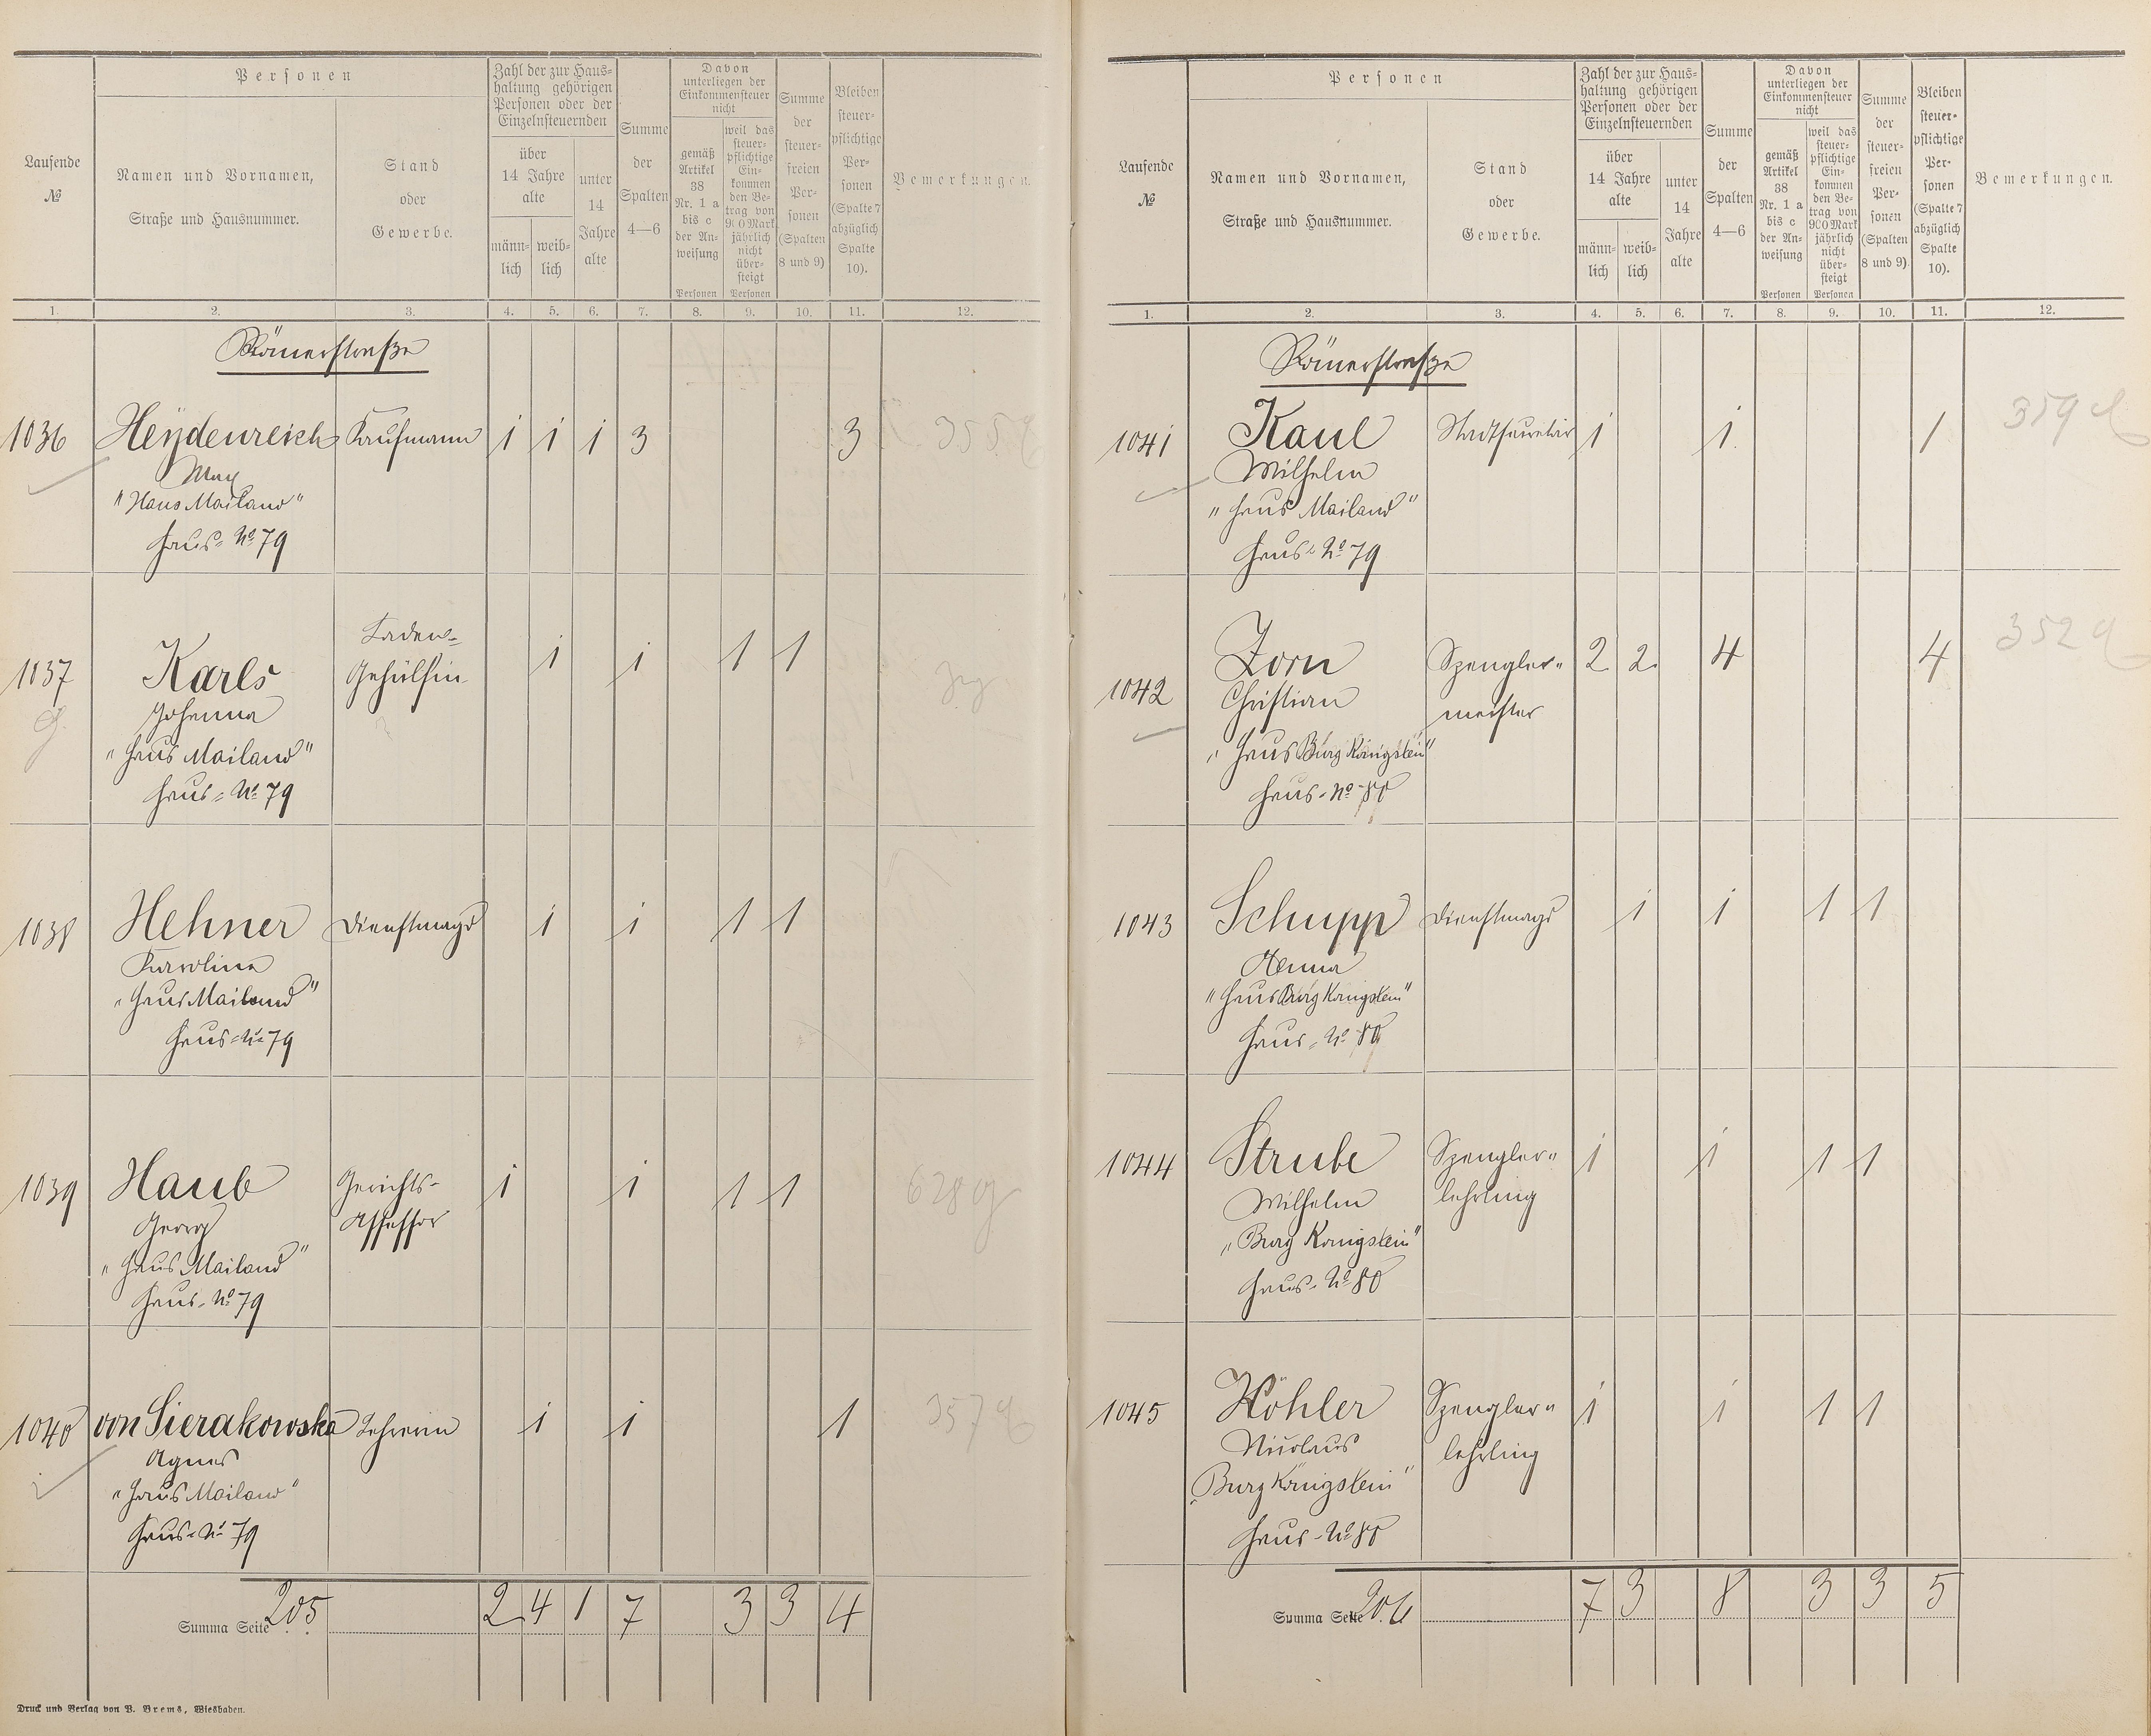 Personen
Laufende
№
Namen und Vornamen,
Straße und Hausnummer.
Stand
oder
Gewerbe.
Zahl der zur Haus=
haltung gehörigen
Personen oder der
Einzelnsteuernden
über
14 Jahre
alte
männ=
lich
weib=
lich
unter
14
Jahre
alte
Summe
der
Spalten
4—6
Davon
unterliegen der
Einkommensteuer
nicht
gemäß
Artikel
38
Nr. 1 a
bis c
der An=
weisung
Personen
weil das
steuer=
pflichtige
Ein=
kommen
den Be=
trag von
900 Mark
jährlich
nicht
über=
steigt
Personen
Summe
der
steuer=
freien
Per=
sonen
(Spalten
8 und 9)
Bleiben
steuer=
pflichtige
Per=
sonen
(Spalte 7
abzüglich
Spalte
10).
Bemerkungen.
1. 2. 3. 4. 5. 6. 7. 8. 9. 10. 11. 12.
Römerstraße
1036 Heydenreich Kaufmann 1 1 1 3 3 355
Max
"Haus Mailand"
Haus=No 79
1037 Karls Laden=
Gehülfin 1 1 1 1
Johanna
"Haus Mailand"
Haus=No 79
1038 Hehner Dienstmagd 1 1 1 1
Karoline
"Haus Mailand"
Haus=No 79
1039 Haub Gerichts=
Assessor 1 1 1 1 628
Georg
"Haus Mailand"
Haus=No 79
1040 von Sierakowska Lehrerin 1 1 1 357
Agnes
"Haus Mailand"
Haus=No 79
Summa Seite 205 2 4 1 7 3 3 4
Druck und Verlag von P. Brems, Wiesbaden.
Personen
Laufende
№
Namen und Vornamen,
Straße und Hausnummer.
Stand
oder
Gewerbe.
Zahl der zur Haus=
haltung gehörigen
Personen oder der
Einzelnsteuernden
über
14 Jahre
alte
männ=
lich
weib=
lich
unter
14
Jahre
alte
Summe
der
Spalten
4—6
Davon
unterliegen der
Einkommensteuer
nicht
gemäß
Artikel
38
Nr. 1 a
bis c
der An=
weisung
Personen
weil das
steuer=
pflichtige
Ein=
kommen
den Be=
trag von
900 Mark
jährlich
nicht
über=
steigt
Personen
Summe
der
steuer=
freien
Per=
sonen
(Spalten
8 und 9)
Bleiben
steuer=
pflichtige
Per=
sonen
(Spalte 7
abzüglich
Spalte
10).
Bemerkungen.
1. 2. 3. 4. 5. 6. 7. 8. 9. 10. 11. 12.
Römerstraße
1041 Kaul Stadtsecretär 1 1 1 359
Wilhelm
"Haus Mailand"
Haus=No 79
1042 Zorn Spengler=
meister 2 2 4 4 352
Christian
"Haus Burg Königstein"
Haus=No 80
1043 Schupp Dienstmagd 1 1 1 1
Anna
"Haus Burg Königstein"
Haus=No 80
1044 Strube Spengler=
lehrling 1 1 1 1
Wilhelm
"Burg Königstein"
Haus=No 80
1045 Köhler Spengler=
lehrling 1 1 1 1
Nicolaus
"Burg Königstein"
Haus=No 80
Summa Seite 206 7 3 8 3 3 5